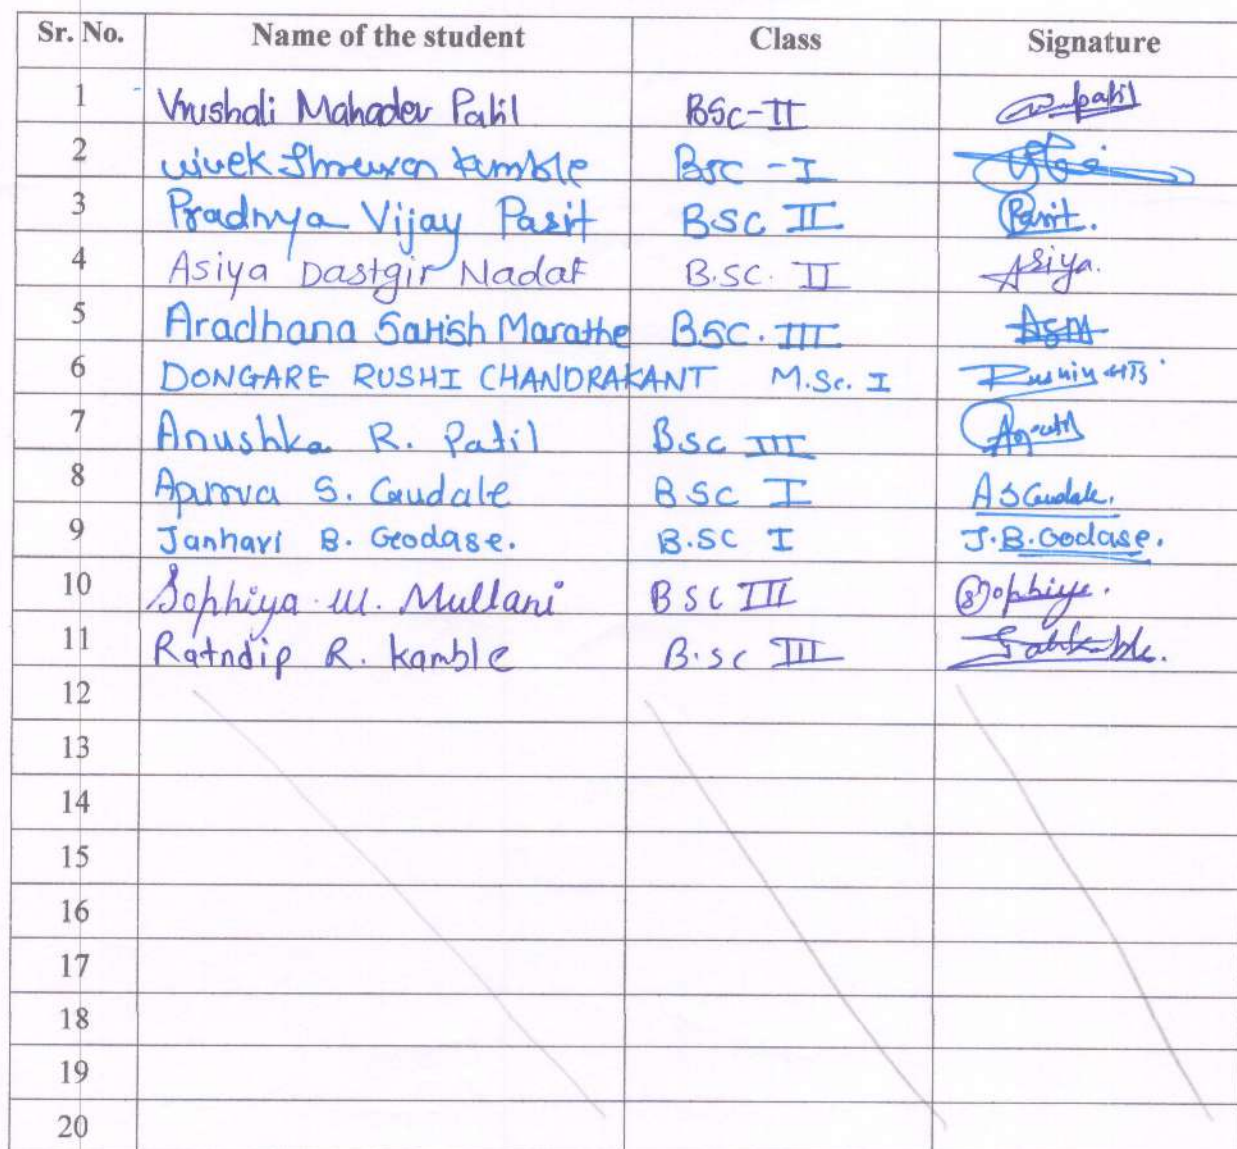 Sr. No. Name of the student Class Signature
1 Vrushali Mahadev Patil BSc-II
2 Vivek Kamble BSC-I
3 Pradnya Vijay Parit BSC II Parit.
4 Asiya Dastgir Nadaf B.SC. II Asiya.
5 Aradhana Satish Marathe BSC. III ASM
6 DONGARE RUSHI CHANDRAKANT M.Sc. I
7 Anushka R. Patil BSC III
8 Apurva S. Gaudale BSC I
9 Janhavi B. Godase. B.SC I J.B.Godase.
10 Sophiya M. Mullani BSC III Sophiya.
11 Ratndip R. Kamble B.SC III
12
13
14
15
16
17
18
19
20